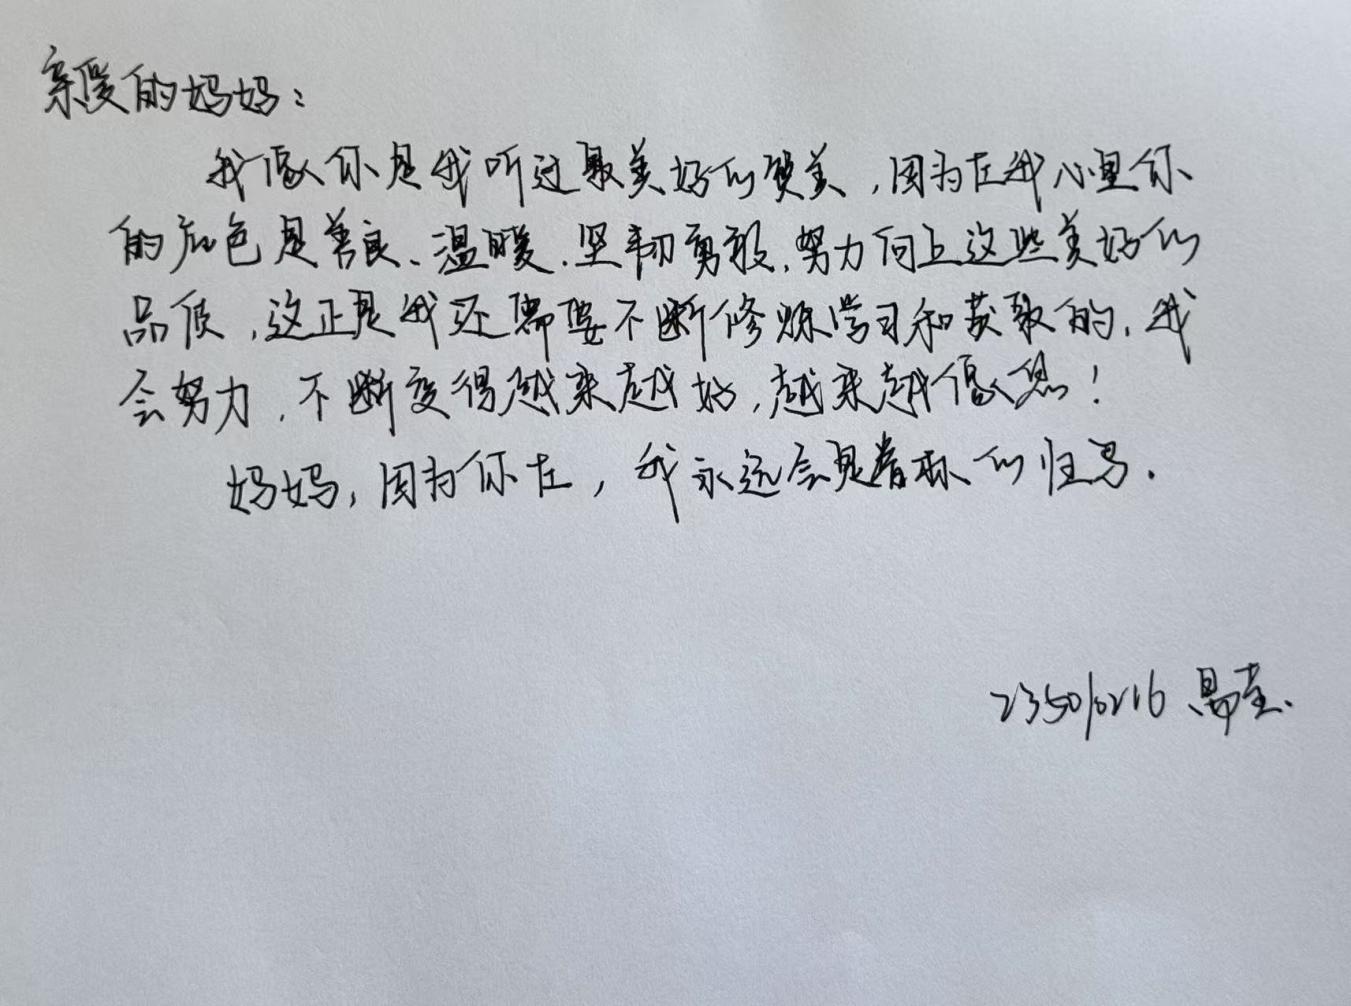 亲爱的妈妈：
我像你是我听过最美好的赞美，因为在我心里你
的底色是善良、温暖、坚韧勇敢，努力向上这些美好的
品质，这正是我还需要不断修炼学习和获取的，我
会努力，不断变得越来越好，越来越像您！
妈妈，因为你在，我永远会是青春的归马．
235010216